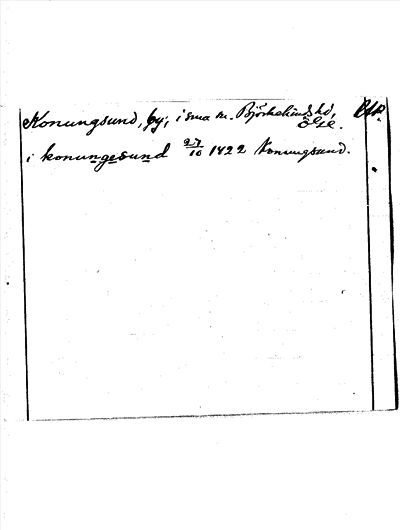 Konungsund, by, i sma sn. Björkekinds hd, ÖGL.
i konungesund 27/10 1422 Konungsund.